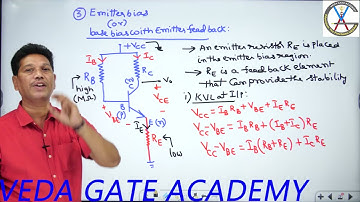 ③ Emitter bias
(or)
base bias with Emitter feed back:
+Vcc
IB
IC
RB
high
(MΩ)
RC
Vo
VCE
B
(P)
VBE
IE
E(n)
RE
low
→ An emitter resistor RE is placed
in the emitter bias region.
→ RE is a feed back element
that can provide the stability
i) KVL at I/P:
Vcc = IB RB + VBE + IE RE
Vcc - VBE = IB RB + (IB + IC) RE
Vcc - VBE = IB (RB + RE) + IC RE
VEDA GATE ACADEMY